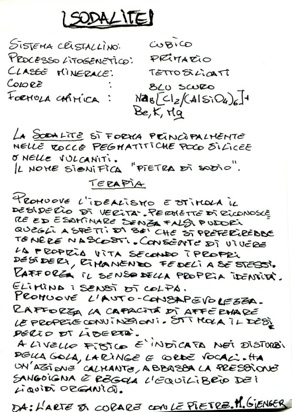 [SODALITE]
SISTEMA CRISTALLINO: CUBICO
PROCESSO LITOGENETICO: PRIMARIO
CLASSE MINERALE: TETTOSILICATI
COLORE : BLU SCURO
FORMULA CHIMICA : Na8[Cl2/(AlSiO4)6]+
Be,K,Mg
LA SODALITE SI FORMA PRINCIPALMENTE
NELLE ROCCE PEGMATITICHE POCO SILICEE
O NELLE VULCANITI.
IL NOME SIGNIFICA "PIETRA DI SODIO".
TERAPIA
PROMUOVE L'IDEALISMO E STIMOLA IL
DESIDERIO DI VERITA'. PERMETTE DI RICONOSCE
RE ED ESAMINARE SENZA FALSI PUDORI
QUEGLI ASPETTI DI SE' CHE SI PREFERIREBBE
TENERE NASCOSTI. CONSENTE DI VIVERE
LA PROPRIA VITA SECONDO I PROPRI
DESIDERI, RIMANENDO FEDELI A SE STESSI.
RAFFORZA IL SENSO DELLA PROPRIA IDENTITÀ.
ELIMINA I SENSI DI COLPA.
PROMUOVE L'AUTO-CONSAPEVOLEZZA.
RAFFORZA LA CAPACITÀ DI AFFERMARE
LE PROPRIE CONVINZIONI. STIMOLA IL DESI
DERIO DI LIBERTÀ.
A LIVELLO FISICO E' INDICATA NEI DISTURBI
DELLA GOLA, LARINGE E CORDE VOCALI. HA
UN'AZIONE CALMANTE, ABBASSA LA PRESSIONE
SANGUIGNA E REGOLA L'EQUILIBRIO DEI
LIQUIDI ORGANICI.
DA: L'ARTE DI CURARE CON LE PIETRE. M. GIENGER